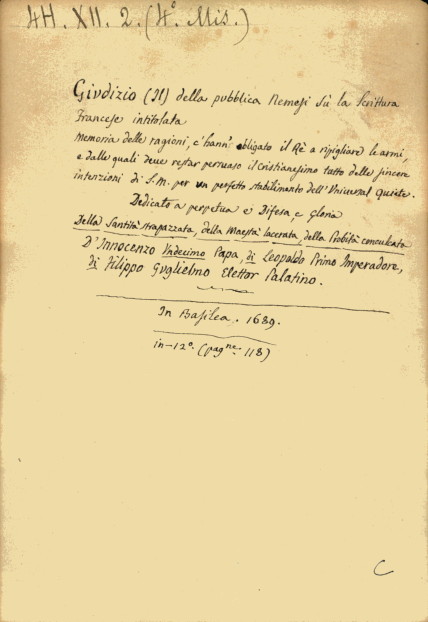 4H. XII. 2. (4.º Mis.)
Giudizio (Il) della pubblica Nemesi sù la Scrittura
Francese intitolata
Memoria delle ragioni, c'hann' obligato il Rè a ripigliare le armi,
e dalle quali deue restar persuaso il cristianesimo tutto delle sincere
intenzioni di S. M. per un perfetto stabilimento dell' Uniuersal quiete.
Dedicato a perpetua e Difesa, e gloria
Della Santità strapazzata, della Maestà lacerata, della Probità conculcata
D'Innocenzo Vndecimo Papa, di Leopoldo Primo Imperadore,
di Filippo Guglielmo Elettor Palatino.
In Basilea. 1689.
in-12º. (pagne. 118)
C